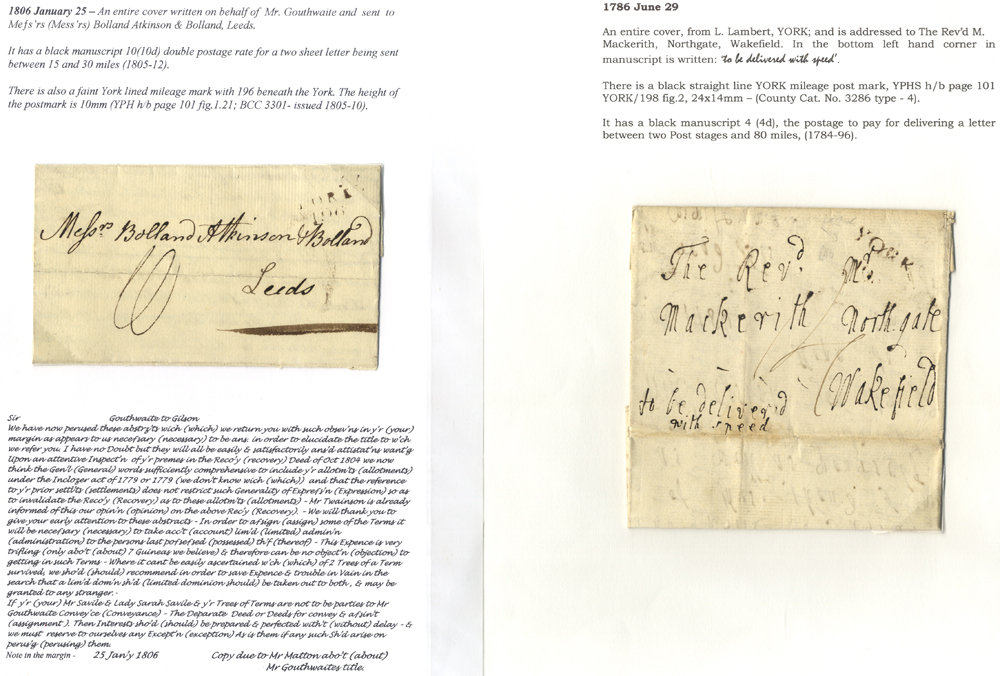 1806 January 25 – An entire cover written on behalf of Mr. Gouthwaite and sent to
Meſs'rs (Mess'rs) Bolland Atkinson & Bolland, Leeds.
It has a black manuscript 10(10d) double postage rate for a two sheet letter being sent
between 15 and 30 miles (1805-12).
There is also a faint York lined mileage mark with 196 beneath the York. The height of
the postmark is 10mm (YPH h/b page 101 fig.1.21; BCC 3301- issued 1805-10).
YORK
196
Meſsrs Bolland Atkinson & Bolland
10
Leeds
Sir Gouthwaite to Gilson
We have now perused these abstr'ts wich (which) we return you with such obsev'ns in y'r (your)
margin as appears to us necefsary (necessary) to be ans. in order to elucidate the title to w'ch
we refer you. I have no Doubt but they will all be easily & satisfactorily ans'd attistat'ns want'g
upon an attentive Inspect'n of y'r premes in the Reco'y (recovery) Deed of Oct 1804 we now
think the Gen'l (General) words sufficiently comprehensive to include y'r allotm'ts (allotments)
under the Inclozer act of 1779 or 1779 (we don't know wich (which)) and that the reference
to y'r prior settl'ts (settlements) does not restrict such Generality of Expref'n (Expression) so as
to invalidate the Reco'y (Recovery) as to these allotm'ts (allotments) - Mr Twainson is already
informed of this our opin'n (opinion) on the above Rec'y (Recovery). - We will thank you to
give your early attention to these abstracts - In order to afsign (assign) some of the Terms it
will be necefsary (necessary) to take acc't (account) lim'd (limited) admin'n
(administration) to the persons last pofsefsed (possessed) th'f (thereof) - This Expence is very
trifling (only abo't (about) 7 Guineas we believe) & therefore can be no object'n (objection) to
getting in such Terms - Where it cant be easily ascertained w'ch (which) of 2 Trees of a Term
survived, we sho'd (should) recommend in order to save Expence & trouble in Vain in the
search that a lim'd dom'n sh'd (limited dominion should) be taken out to both , & may be
granted to any stranger.-
If y'r (your) Mr Savile & Lady Sarah Savile & y'r Trees of Terms are not to be parties to Mr
Gouthwaite Convey'ce (Conveyance) - The Deparate Deed or Deeds for convey & afsin't
(assignment ). Then Interests sho'd (should) be prepared & perfected with't (without) delay - &
we must reserve to ourselves any Except'n (exception) As is them if any such Sh'd arise on
perus'g (perusing) them.
Note in the margin - 25 Jan'y 1806 Copy due to Mr Matton abo't (about)
Mr Gouthwaites title.
1786 June 29
An entire cover, from L. Lambert, YORK; and is addressed to The Rev'd M.
Mackerith, Northgate, Wakefield. In the bottom left hand corner in
manuscript is written: 'to be delivered with speed'.
There is a black straight line YORK mileage post mark, YPHS h/b page 101
YORK/198 fig.2, 24x14mm – (County Cat. No. 3286 type - 4).
It has a black manuscript 4 (4d), the postage to pay for delivering a letter
between two Post stages and 80 miles, (1784-96).
YORK
The Revd Mr
Mackerith Northgate
Wakefield
to be deliverd
with speed